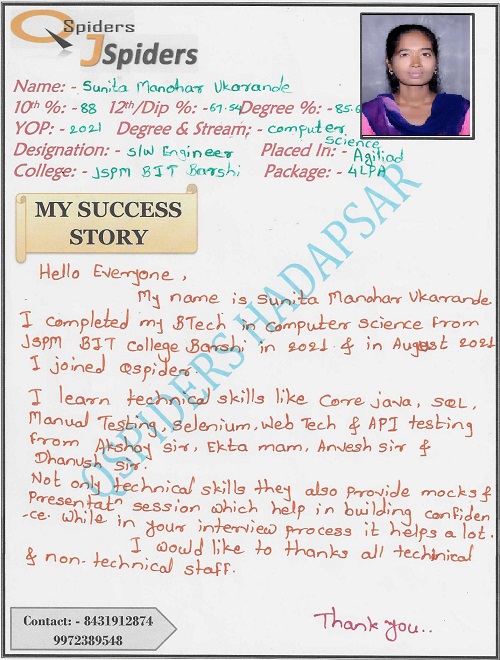 QSpiders
JSpiders
Name: - Sunita Manohar Ukarande
10th %: - 88 12th/Dip %: -67.54 Degree %: - 85.6
YOP: - 2021 Degree & Stream: - computer science
Designation: - S/W Engineer Placed In: - Agiliad
College: - JSPM BIT Barshi Package: - 4LPA
MY SUCCESS
STORY
QSPIDERS HADAPSAR
Hello Everyone,
My name is Sunita Manohar Ukarande
I completed my BTech in computer science from
JSPM BIT college Barshi in 2021 & in August 2021
I joined Qspider.
I learn technical skills like Core java, SQL,
Manual Testing, Selenium, Web Tech & API testing
from Akshay sir, Ekta mam, Anvesh sir &
Dhanush sir.
Not only technical skills they also provide mocks &
Presentatn session which help in building confiden
-ce. while in your interview process it helps a lot.
I would like to thanks all techinical
& non-technical staff.
Thank you..
Contact: - 8431912874
9972389548